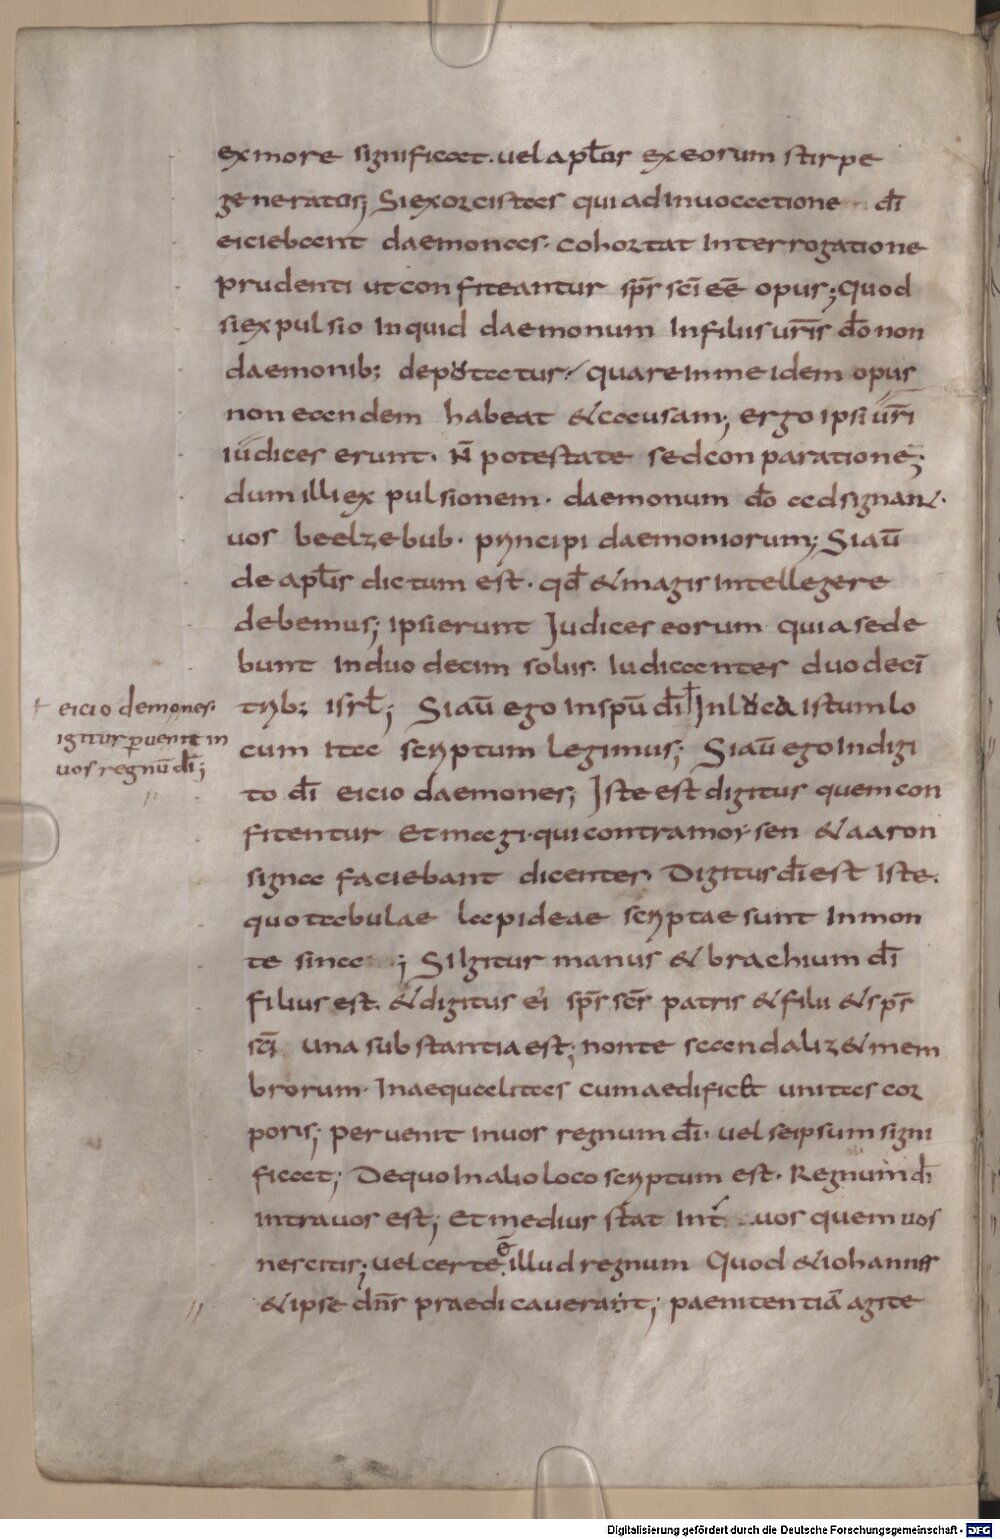 ex more significat. uel apl̅os ex eorum stirpe
generatos; Si exorcistas qui ad inuocatione d̅i
eiciebant daemonas. cohortat interrogatione
prudenti ut confiteantur sp̅s sc̅i ee̅ opus; Quod
si expulsio inquid daemonum in filiis ur̅is d̅o non
daemonib; deputatur, quare in me idem opus
non eandem habeat & causam; ergo ipsi ur̅i
iudices erunt. N̅ potestate sed conparatione;
dum illi expulsionem. daemonum d̅o adsignant.
uos beelzebub. principi daemoniorum; Si au̅
de apl̅is dictum est. qd̅ & magis intellegere
debemus; ipsi erunt Iudices eorum quia sede
bunt in duodecim soliis. Iudicantes duodeci̅
trib; isrl̅; Si au̅ ego in spu̅ d̅i In luca istum lo
eicio demones.
igitur peruenit in
uos regnu̅ d̅i;
cum ita scriptum legimus; Si au̅ ego in digi
to d̅i eicio daemones; Iste est digitus quem con
fitentur et magi. qui contra moysen & aaron
signa faciebant dicentes Digitus d̅i est iste.
quo tabulae lapideae scriptae sunt in mon
te sina; Si Igitur manus & brachium d̅i
filius est. & digitus ei sp̅s sc̅s patris & filii & sp̅s
sc̅i una substantia est; non te scandaliz& mem
brorum. Inaequalitas cum aedificet unitas cor
poris; peruenit in uos regnum d̅i. uel seipsum signi
ficat; De quo In alio loco scriptum est. Regnum d̅i
intra uos est; et medius stat int̅ uos quem uos
nescitis; uel certe illud regnum Quod & iohannes
& ipse dn̅s praedicauerant; paenitentia̅ agite
Digitalisierung gefördert durch die Deutsche Forschungsgemeinschaft - DFG